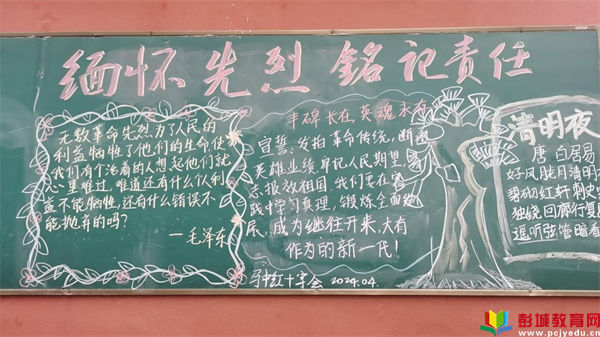 缅怀先烈 銘记责任
无数革命先烈为了人民的
利益牺牲了他们的生命使
我们每个活着的人想起他们就
心里难过,难道还有什么个人利
益不能牺牲,还有什么错误不
能抛弃的吗?
—毛泽东
丰碑长在 英魂永存
宣誓:发扬革命传统,断
英雄业绩,牢记人民期望
志报效祖国.我们要在
践中学习真理,锻炼全面
展,成为继往开来,大有
作为的新一代!
红十字会 2024.04.
清明夜
唐 白居易
好风胧月清明
碧砌红轩刺史
独绕回廊行复
遥听弦管暗看
彭城教育网
www.pcjyedu.cn